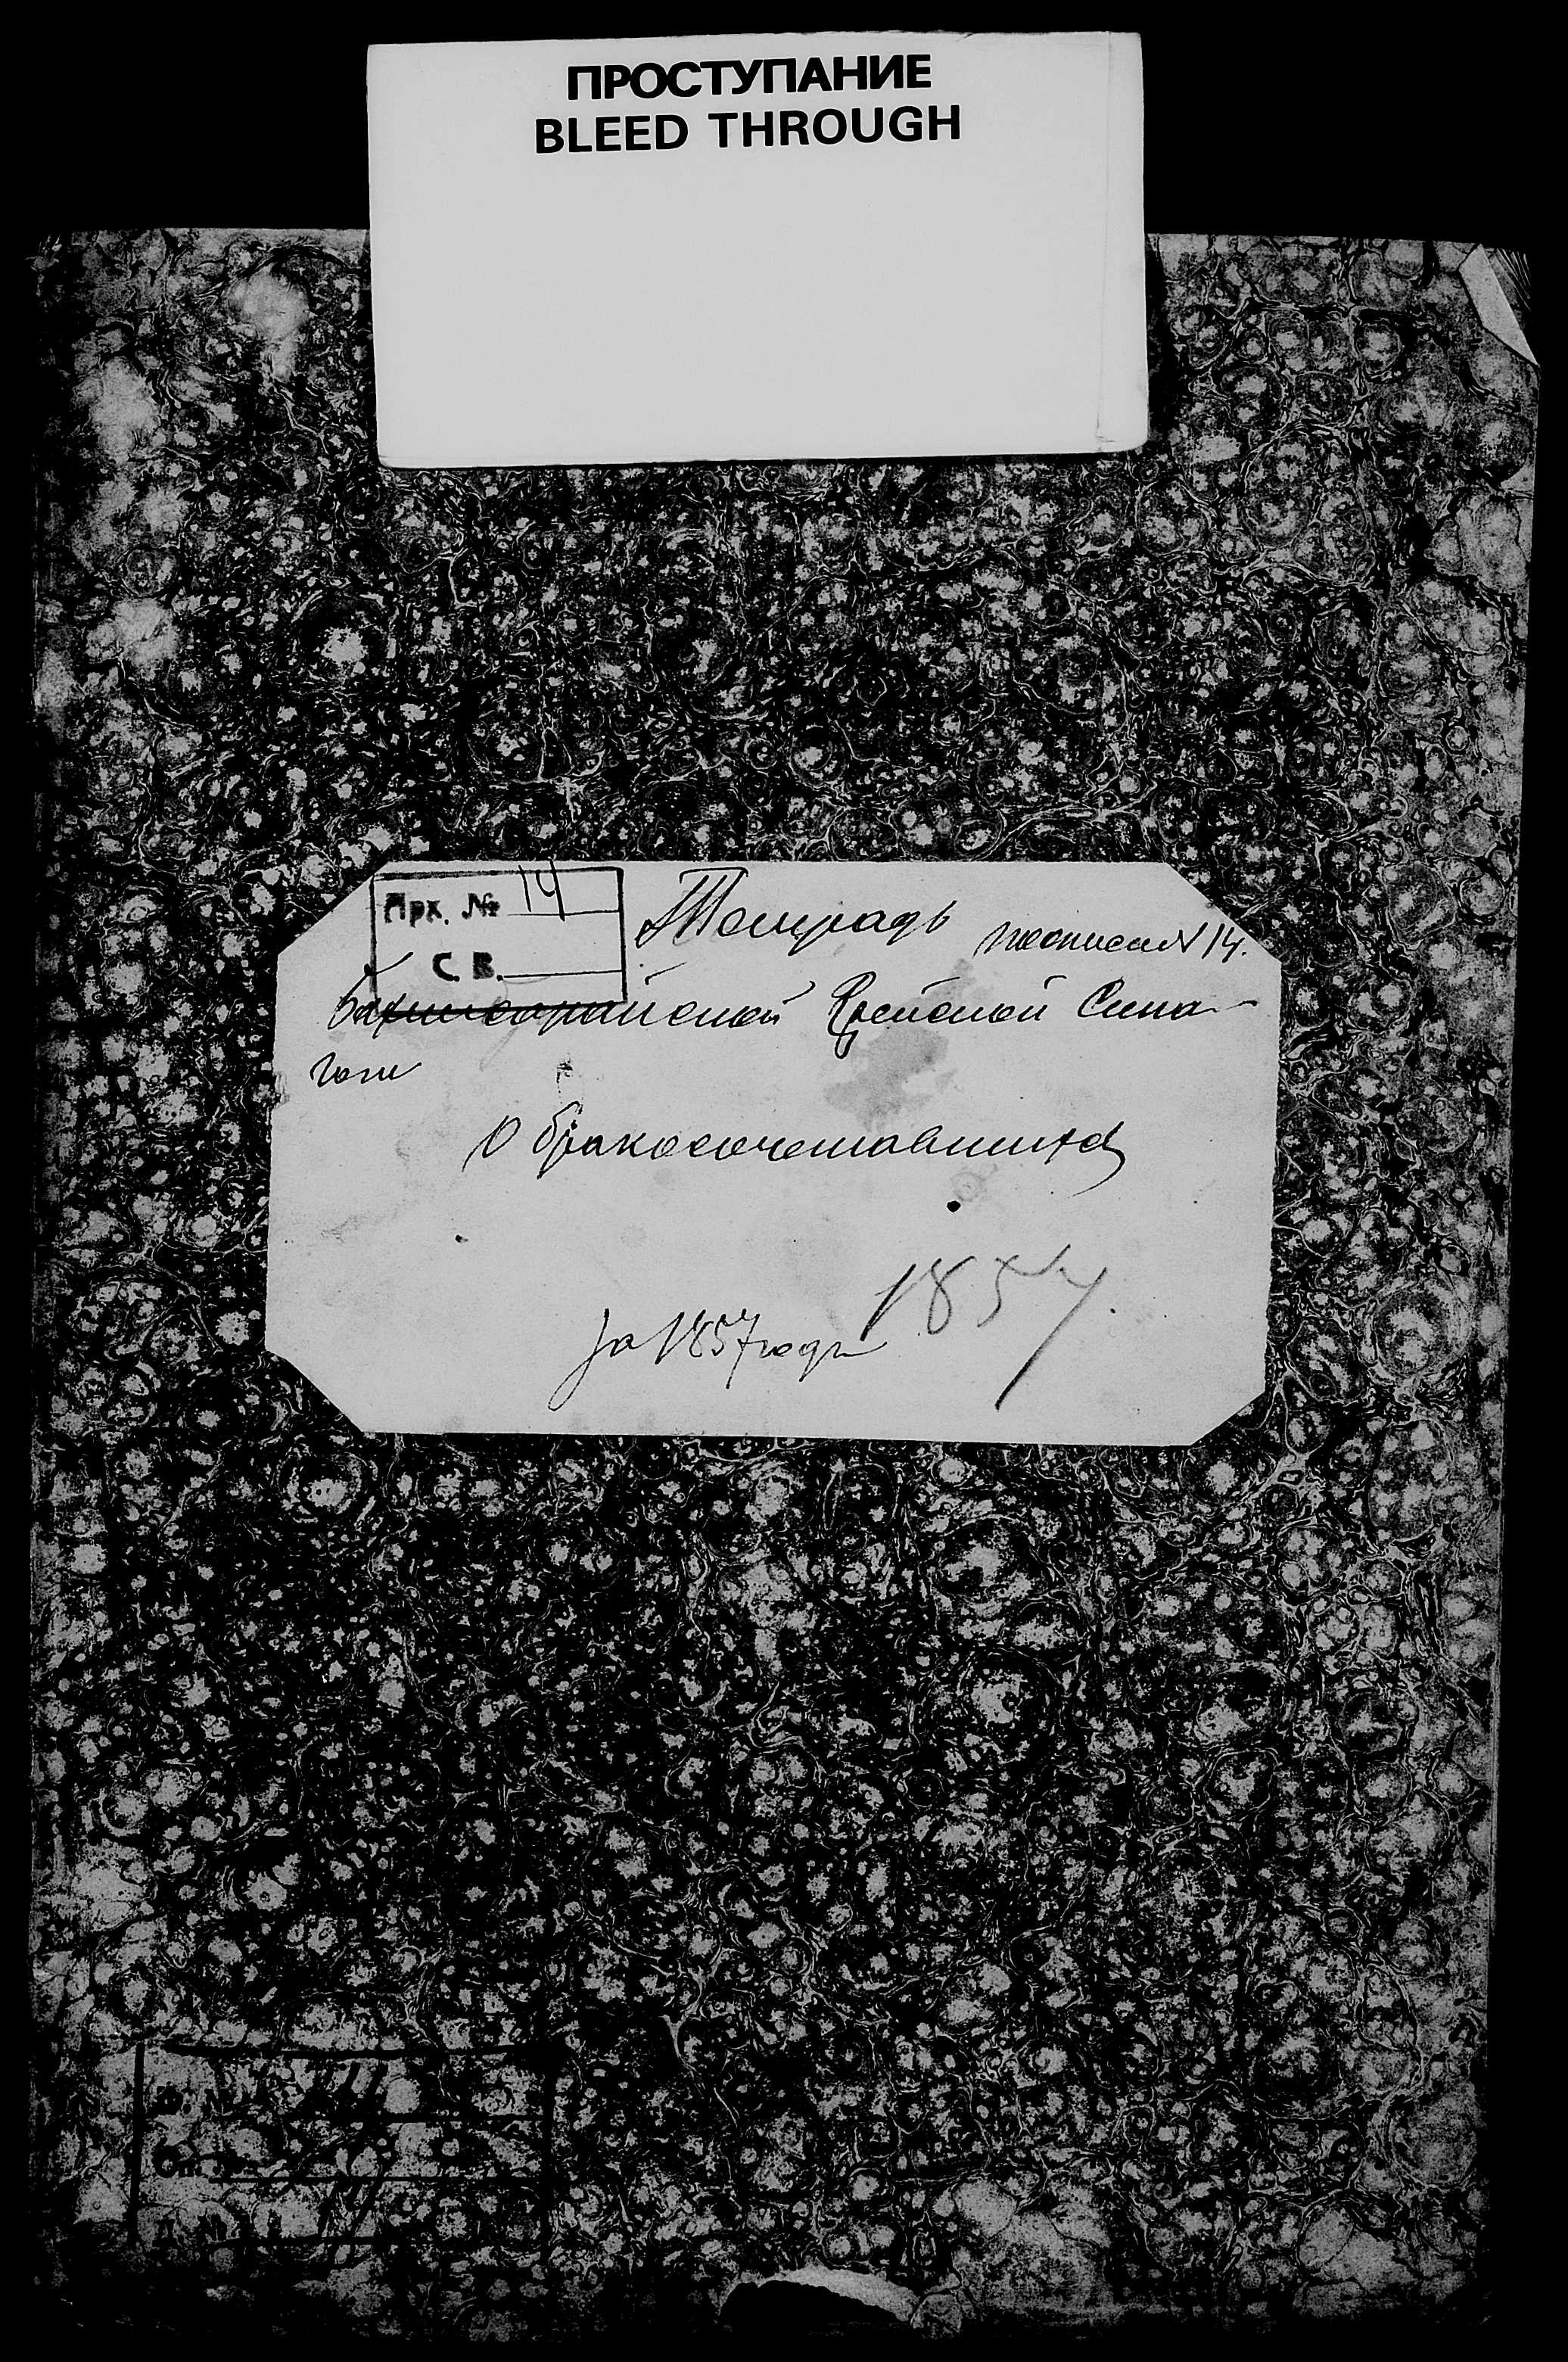 ПРОСТУПАНИЕ
BLEED THROUGH
Арх. № 14
С. В.
Тетрадь по описи № 14.
Бахчисарайской Еврейской Сина-
гоги
О бракосочетавшихся
1857.
за 1857 годъ